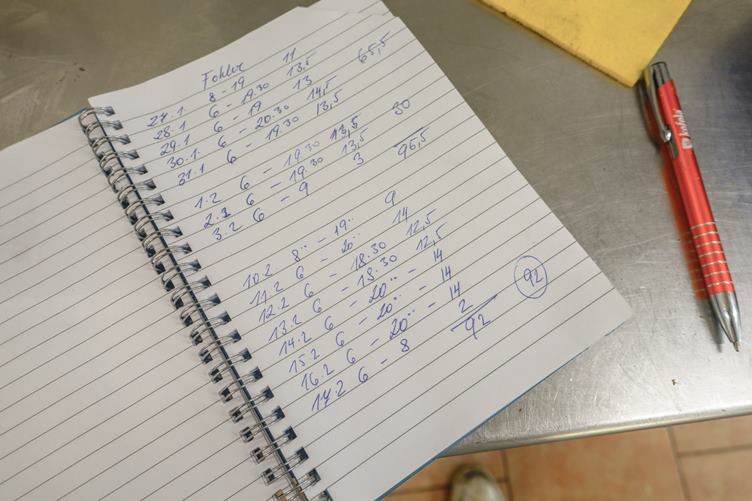 27.1. 8 - 19 11
28.1 6 - 19.30 13,5
29.1 6 - 19 13
30.1. 6 - 20.30 14,5
31.1 6 - 19.30 13,5 65,5
1.2 6 - 19.30 13,5
2.2 6 - 19.30 13,5
3.2 6 - 9 3 30
95,5
10.2 8°° - 19°° 9
11.2 6 - 20°° 14
12.2 6 - 18.30 12,5
13.2 6 - 18.30 12,5
14.2 6 - 20°° - 14
15.2 6 - 20°° - 14
16.2 6 - 20°° - 14
17.2 6 - 8 2
92 92